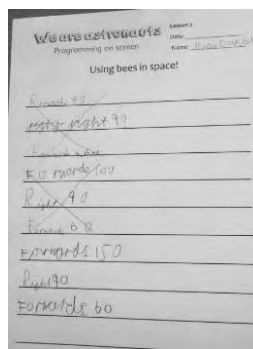 We are astronauts
Programming on screen
Lesson 2
Date:
Name:
Using bees in space!
Forwards 90
right 90
Forwards 100
Right 90
Forwards 60
Forwards 150
Right 90
Forwards 60